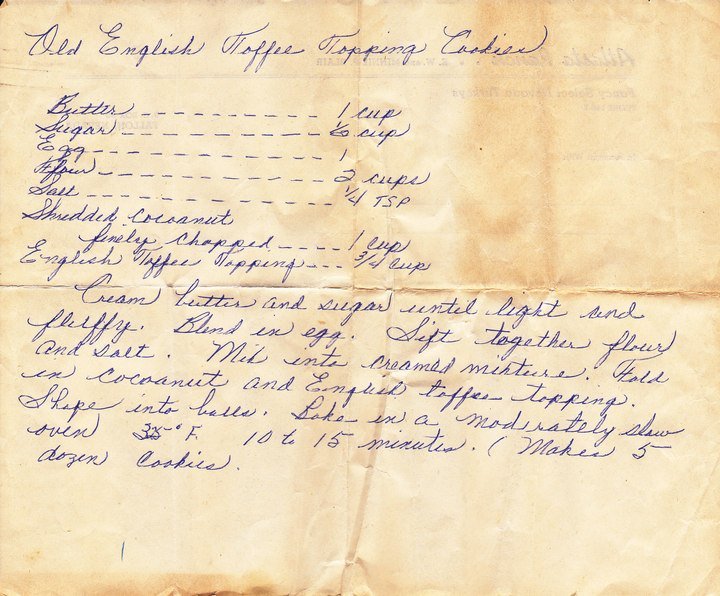 Old English Toffee Topping Cookies
Butter ---------- 1 cup
Sugar ---------- cup
Egg ------------- 1
Flour ----------- 2 cups
Salt ------------ 1/4 TSP
Shredded Cocoanut
finely chopped ---- 1 cup
English Toffee Topping --- 3/4 cup
Cream butter and sugar until light and
fluffy. Blend in egg. Sift together flour
and salt. Mix into creamed mixture. Fold
in cocoanut and English toffee topping.
Shape into balls. Bake in a moderately slow
oven ° F. 10 to 15 minutes. (Makes 5
dozen cookies.